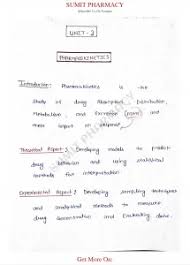 SUMIT PHARMACY
UNIT-3
PHARMACOKINETICS
Introduction: Pharmacokinetics is the
Study of drug Absorption, Distribution,
Metabolism, and Excretion and
their impact on
Theoretical Aspect: Developing models to predict
drug behavior and using statistical
methods for interpretation
Experimental Aspect: Developing sampling techniques
and analytical methods to measure
drug Concentration and Evaluating data.
SUMIT PHARMACY
Get More On: